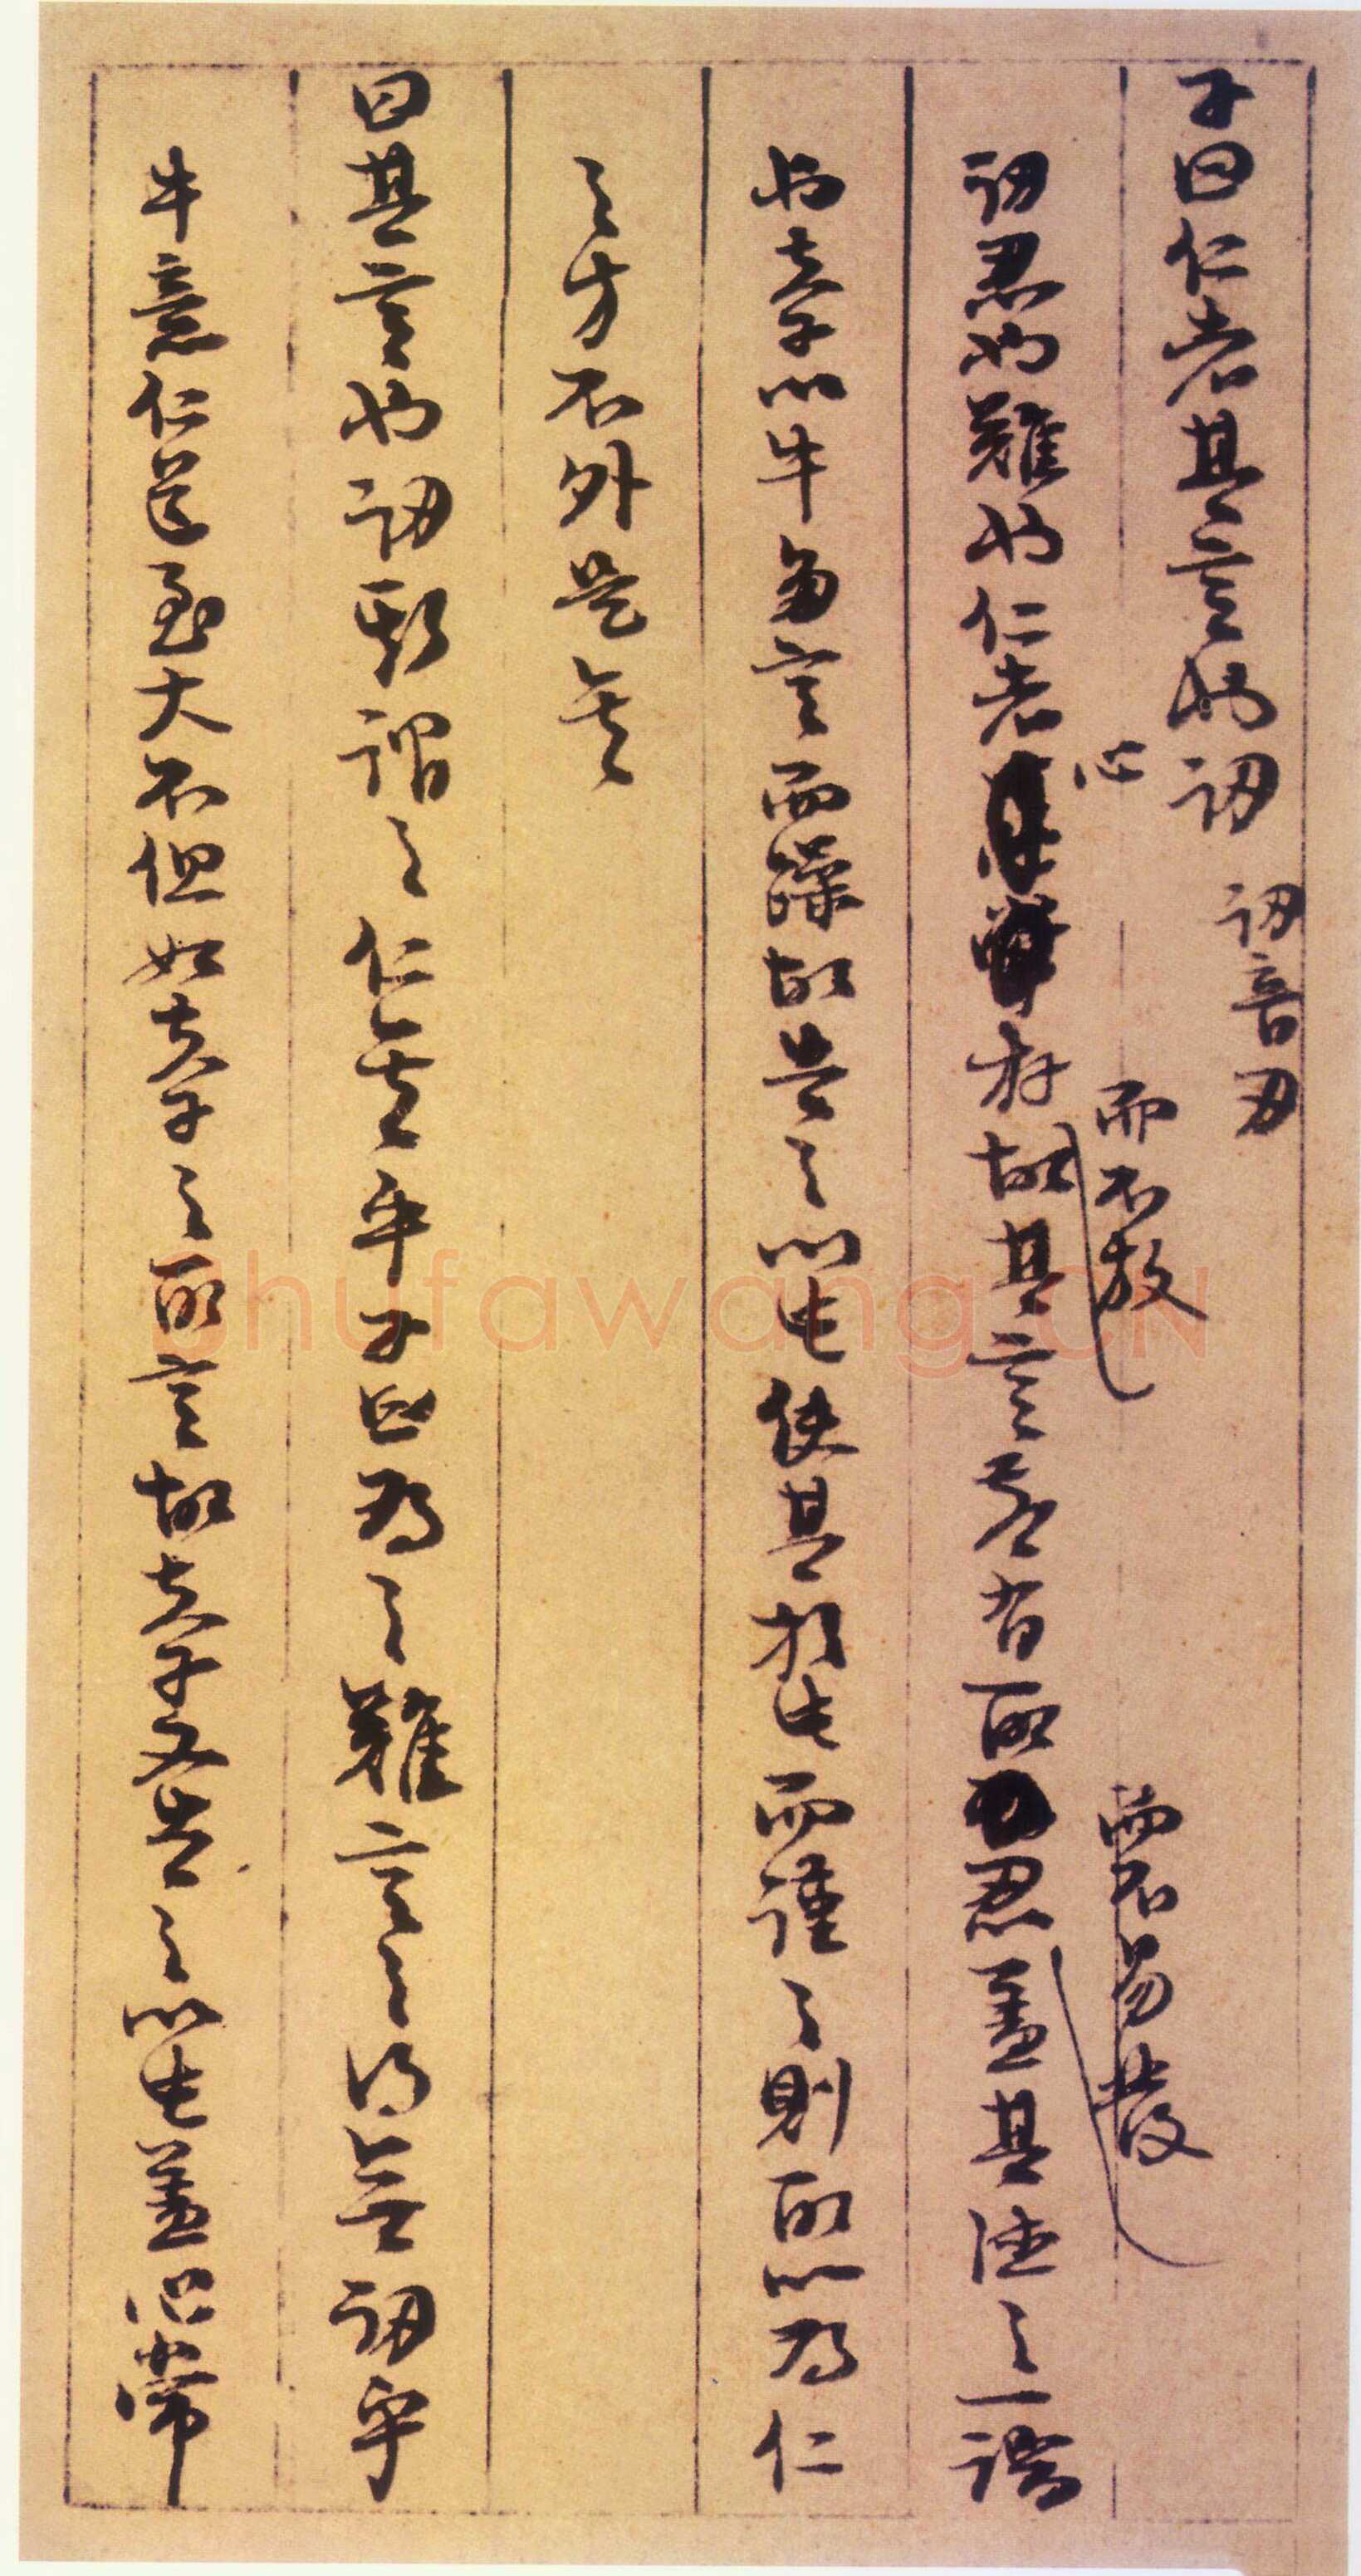 子曰仁者其言也訒 訒音刃
訒忍也難也仁者心存而不放故其言若有所忍而不易發蓋其德之一端
也夫子以牛多言而躁故告之以此使其於此而謹之則所以為仁
之方不外是矣
曰其言也訒斯謂之仁矣乎子曰為之難言之得無訒乎
牛意仁道至大不但如夫子之所言故夫子又告之以此蓋心常
Shufawang.CN